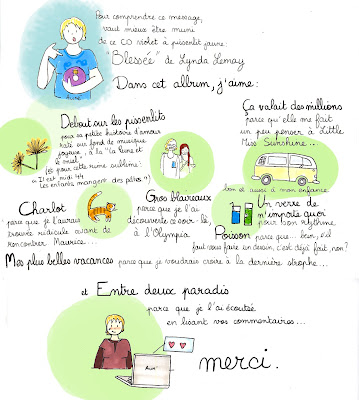 Pour comprendre ce message,
vaut mieux être muni
de ce CD violet à pissenlit jaune:
"Blessée" de Lynda Lemay
Dans cet album, j'aime:
Debout sur les pissenlits
pour sa petite histoire d'amour
raté sur fond de musique
joyeuse, à la "la Reine et
le moi"
(et pour cette ruine sublime:
« Il est midi 44
Les enfants mangent des pâtes »)
Ça valait des millions
parce qu'elle me fait
un peu penser à Little
Miss Sunshine...
bon et aussi à mon enfance.
Charlot
parce que je l'aurais
trouvée ridicule avant de
rencontrer Maurice...
Gros blaireaux
parce que je l'ai
découverte ce soir-là
à l'Olympia
Un verre de
n'importe quoi
pour son rythme
Poisson parce que... ben, s'il
faut vous faire un dessin, c'est déjà fait, non?
Mes plus belles vacances parce que je voudrais croire à la dernière strophe...
et Entre deux paradis
parce que je l'ai écoutée
en lisant vos commentaires...
merci.